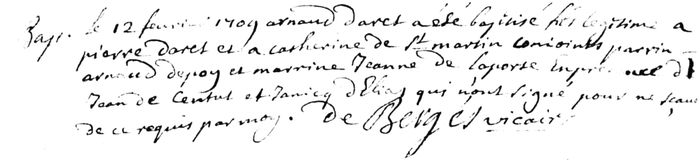 Bap. le 12 fevrier 1709 arnaud daret a été baptisé fils legitime a
pierre daret et a catherine de st martin conjoints parrin
arnaud depoy et marrine Jeanne de laporte en pre
Jean de Centut et Janicq d'Elias qui n'ont signé pour ne scav
de ce requis par moy. de Berges vicaire